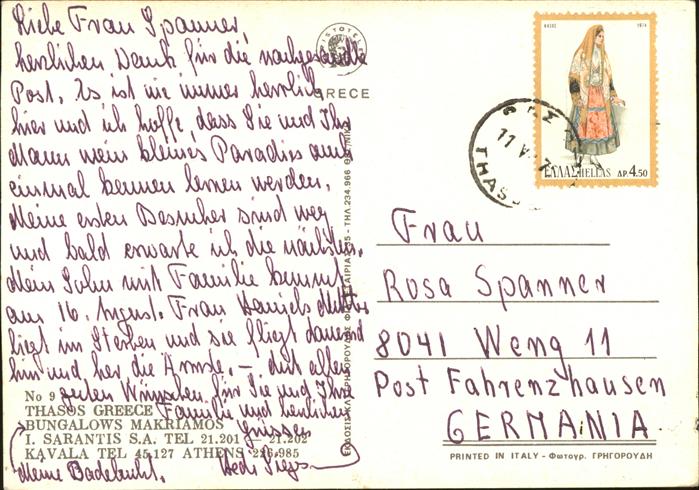 Liebe Frau Spanner,
herzlichen Dank für die nachgesandte
Post. Es ist wie immer herrlich
hier und ich hoffe, dass Sie und Ihr
Mann mein kleines Paradies auch
einmal kennen lernen werden.
Meine ersten Besucher sind weg
und bald erwarte ich die nächsten.
Mein Sohn mit Familie kommt
am 16. August. Frau Daniels Mutter
liegt im Sterben und sie fliegt dauernd
hin und her die Ärmste. – Mit allen
guten Wünschen für Sie und Ihre
Familie und herzlichen
Grüssen
Meine Badebucht.
No 9
THASOS GREECE
BUNGALOWS MAKRIAMOS
I. SARANTIS S.A. TEL 21.201 – 21.202
KAVALA TEL 45.127 ATHENS 226.985
GREECE
THASOS
ΕΛΛΑΣ HELLAS ΔΡ. 4.50
Frau
Rosa Spanner
8041 Weng 11
Post Fahrenzhausen
GERMANIA
PRINTED IN ITALY - Φωτογρ. ΓΡΗΓΟΡΟΥΔΗ